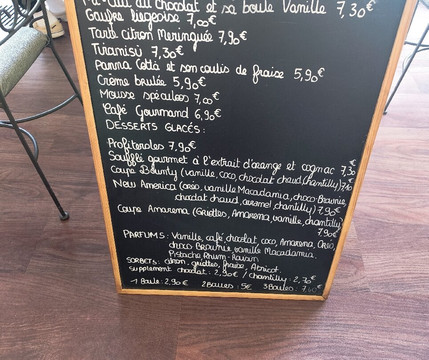 au chocolat et sa boule Vanille 7,30€
Gaufre liégeoise 7,00€
Tarte citron Meringuée 7,90€
Tiramisu 7,30€
Panna Cotta et son coulis de fraise 5,90€
Crème brulée 5,90€
Mousse spéculoos 7,00€
Café Gourmand 6,90€
DESSERTS GLACÉS :
Profiteroles 7,90€
Soufflé gourmet à l'extrait d'orange et cognac 7,30€
Coupe Bounty (vanille, coco, chocolat chaud, chantilly) 7,90€
New America (oréo, vanille Macadamia, choco Brownie,
chocolat chaud, caramel, chantilly) 7,90€
Coupe Amarena (Griottes, Amarena, vanille, chantilly)
7,90€
PARFUMS: Vanille, café, chocolat, coco, Amarena, Oréo,
choco Brownie, vanille Macadamia.
Pistache, Rhum-Raisin
SORBETS: citron, griottes, fraise, Abricot.
supplement chocolat: 2,90€ / chantilly: 2,70€
1 Boule: 2,90€ 2 Boules: 5€ 3 Boules: 7,40€